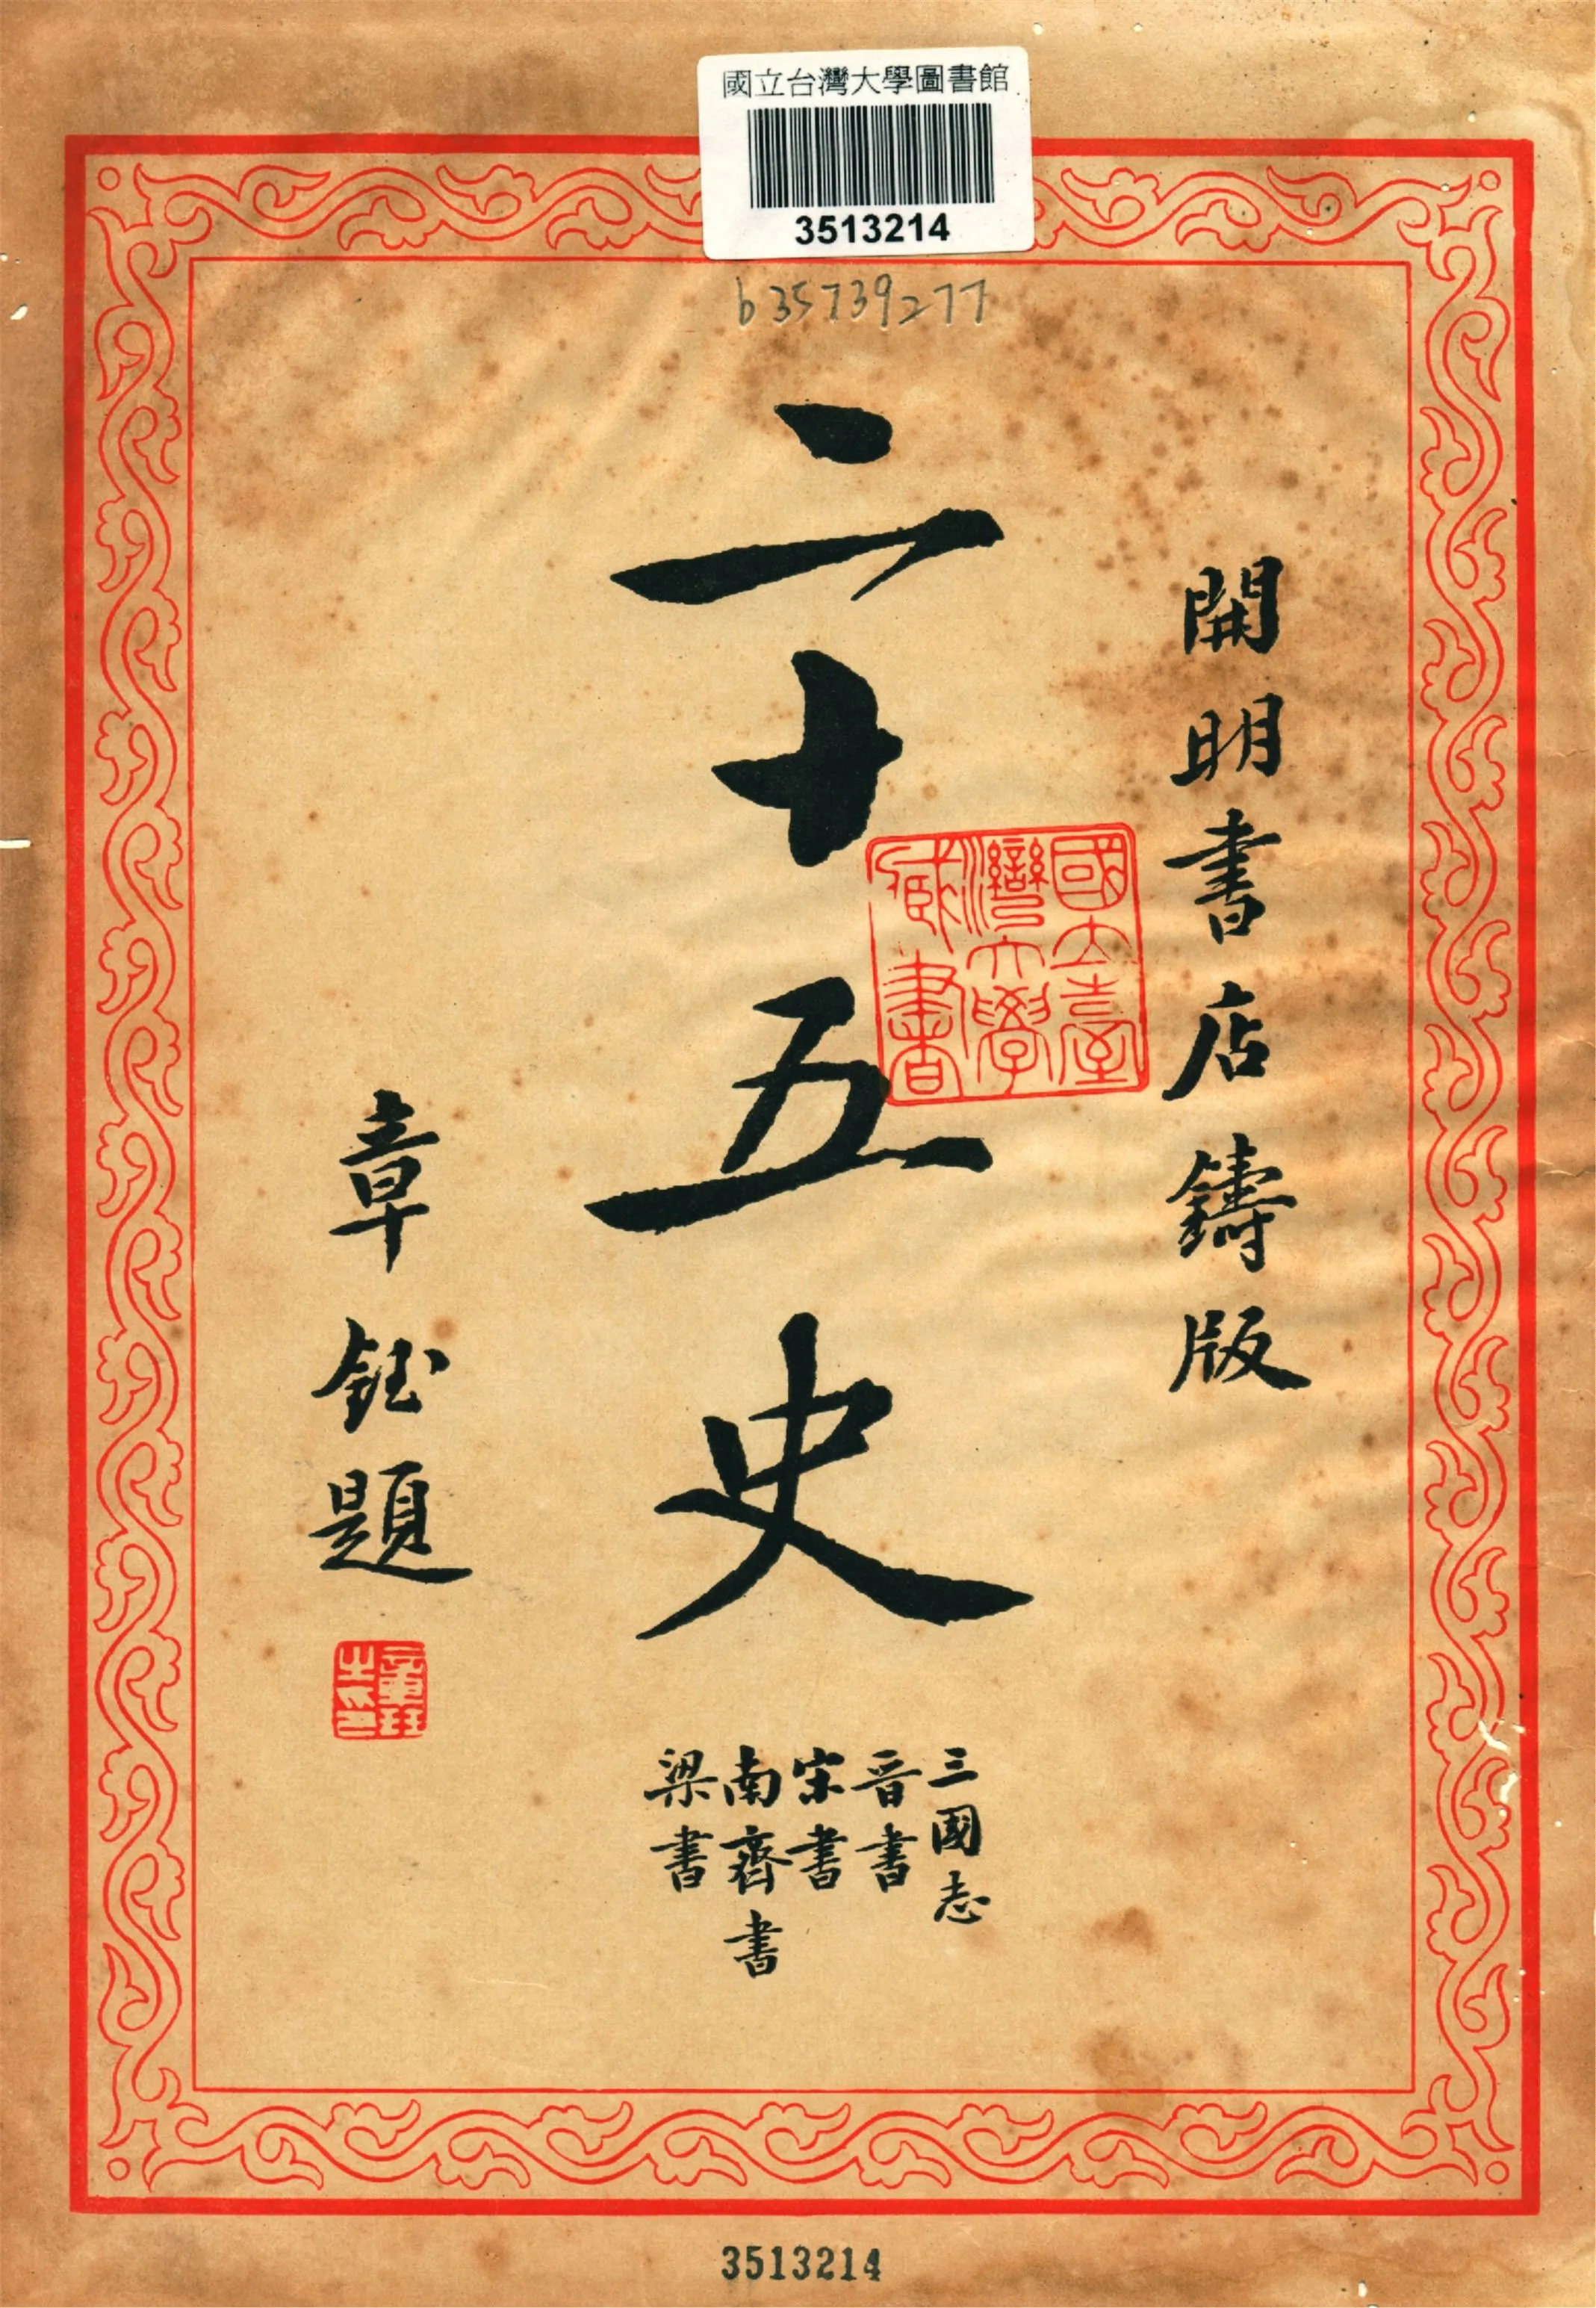 國立台灣大學圖書館
3513214
b35739277
開明書店鑄版
二十五史
國立臺
灣大學
藏書
三國志
晉書
宋書
南齊書
梁書
章鈺題
章鈺
之印
3513214